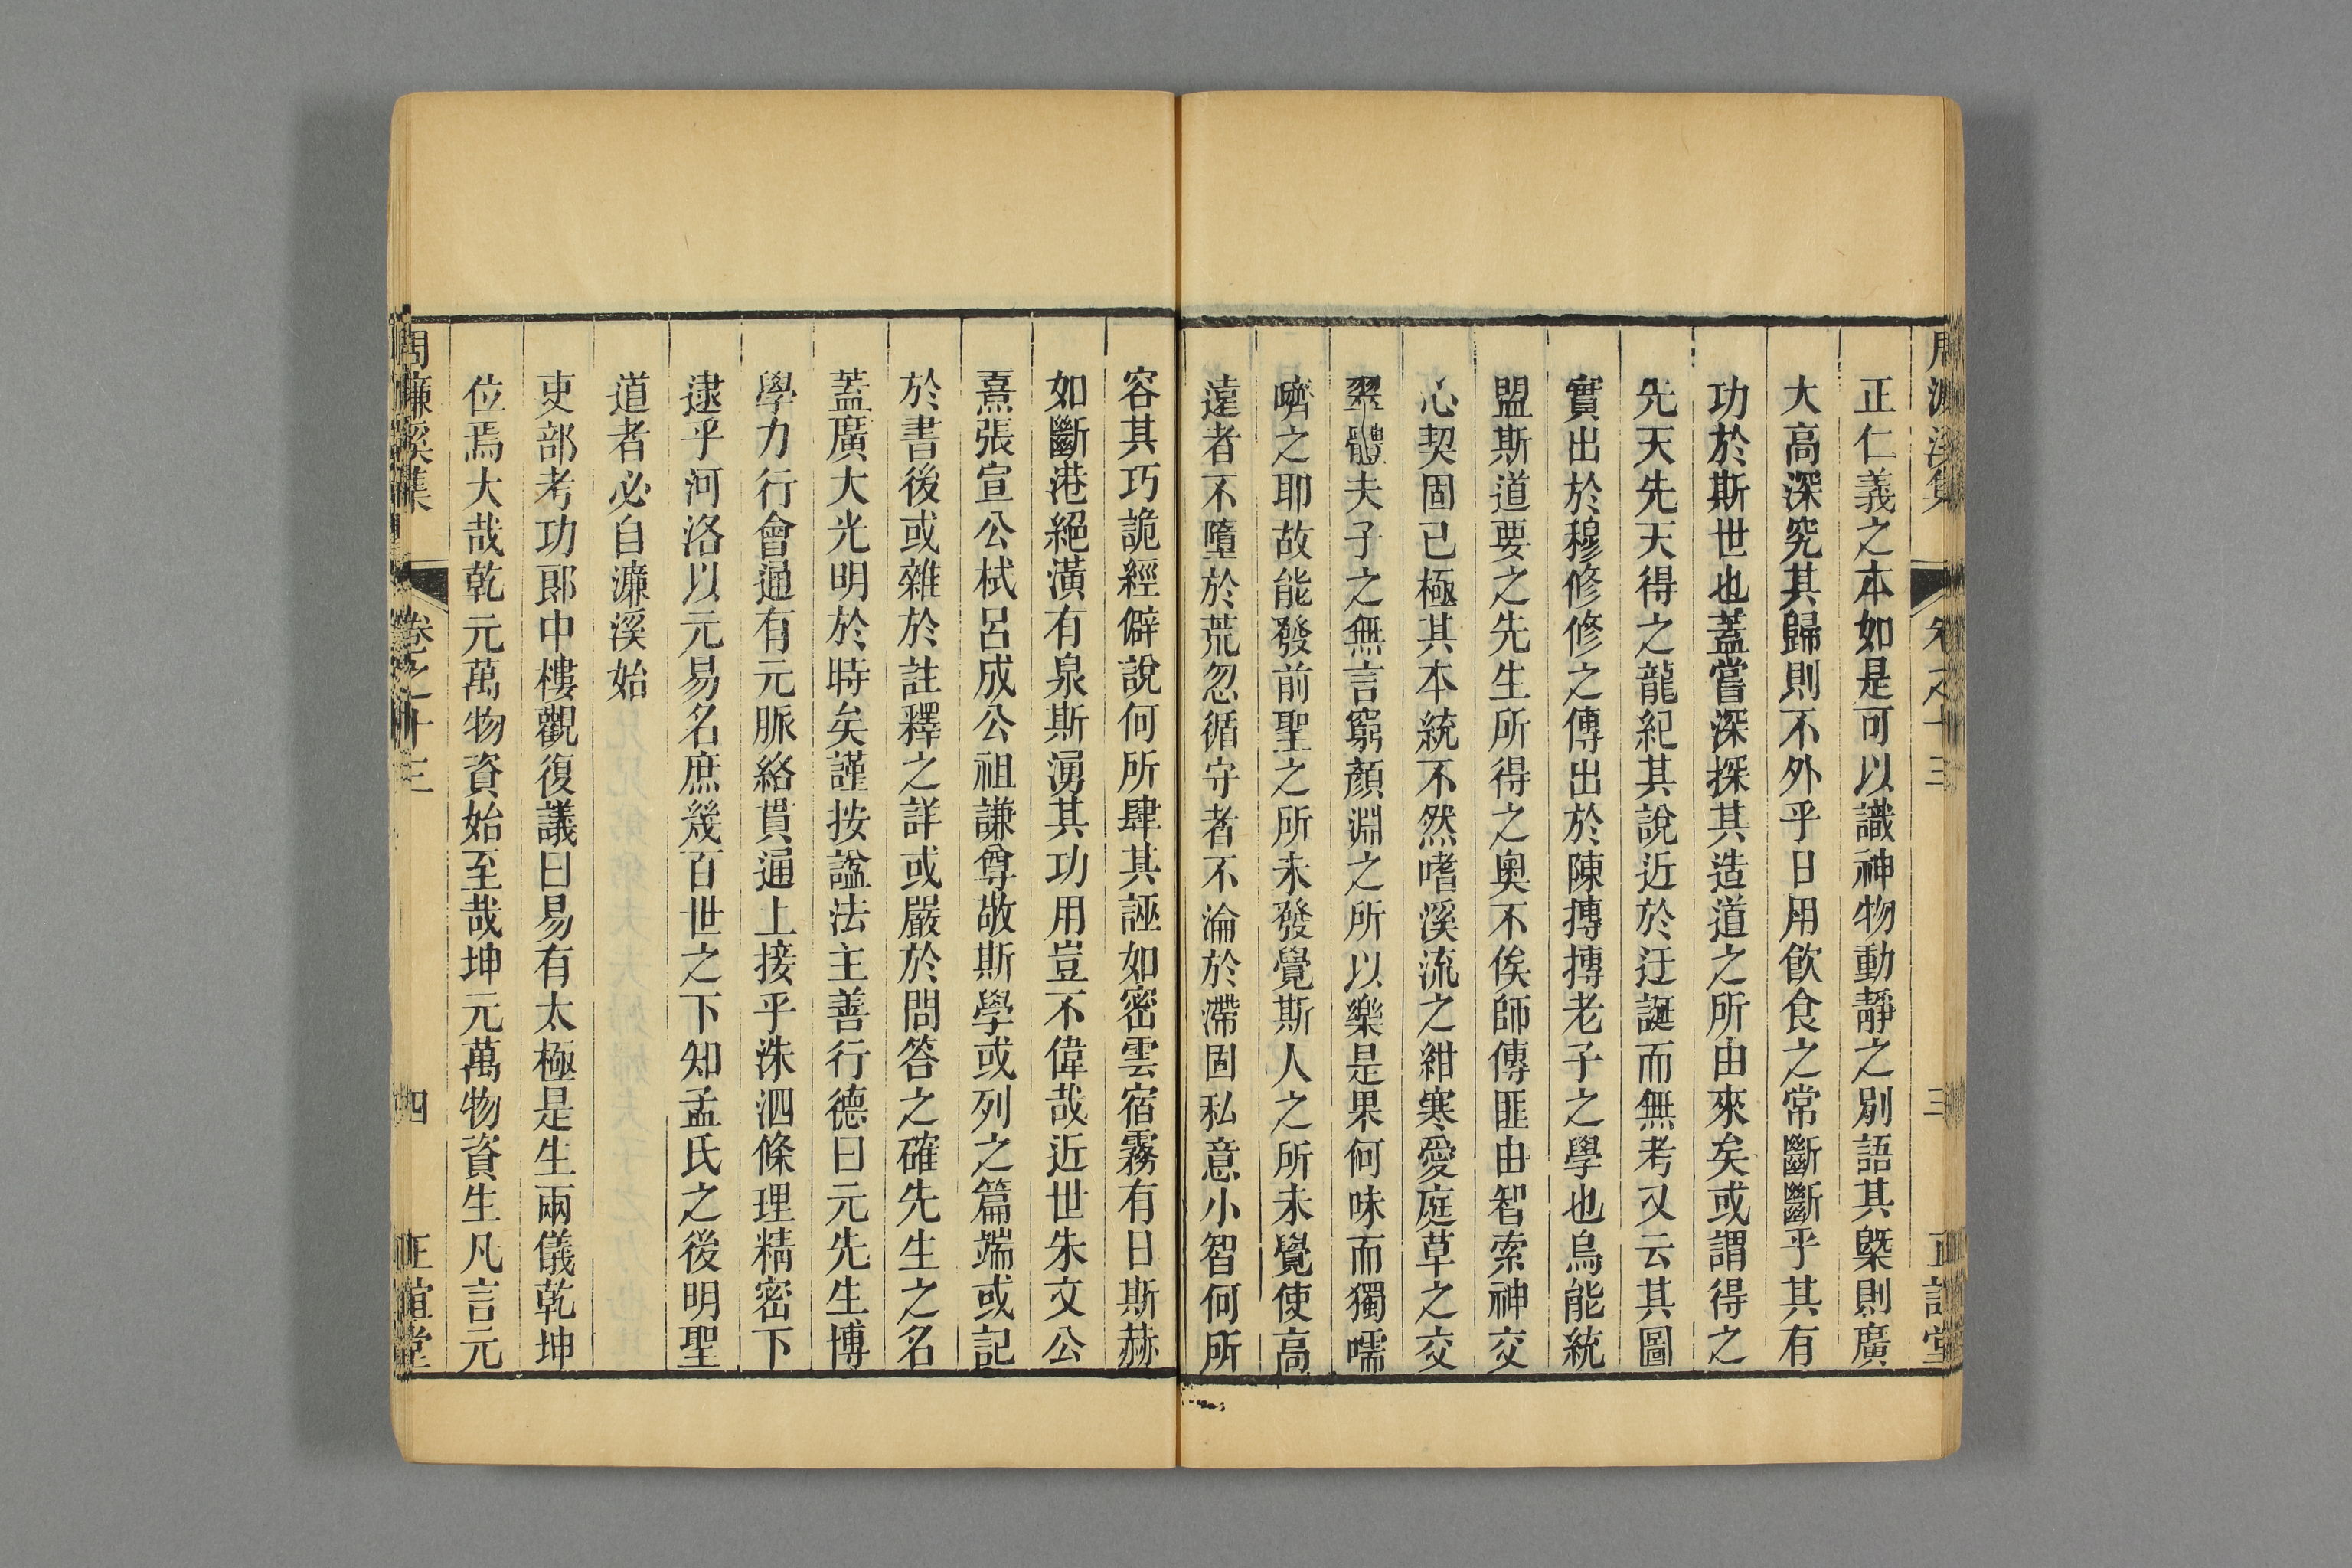 正仁義之本如是可以識神物動靜之別語其槩則廣
大高深究其歸則不外乎日用飮食之常斷斷乎其有
功於斯世也蓋嘗深探其造道之所由來矣或謂得之
先天先天得之龍紀其說近於迂誕而無考又云其圖
實出於穆修修之傳出於陳摶摶老子之學也烏能統
盟斯道要之先生所得之奥不俟師傳匪由智索神交
心契固已極其本統不然嗜溪流之紺寒愛庭草之交
翠體夫子之無言窮顏淵之所以樂是果何味而獨嚅
嚌之耶故能發前聖之所未發覺斯人之所未覺使高
遠者不墮於荒忽循守者不淪於滯固私意小智何所
容其巧詭經僻說何所肆其誣如密雲宿霧有日斯赫
如斷港絕潢有泉斯湧其功用豈不偉哉近世朱文公
熹張宣公栻呂成公祖謙尊敬斯學或列之篇端或記
於書後或雜於註釋之詳或嚴於問答之確先生之名
蓋廣大光明於時矣謹按諡法主善行德曰元先生博
學力行會通有元脈絡貫通上接乎洙泗條理精密下
逮乎河洛以元易名庶幾百世之下知孟氏之後明聖
道者必自濂溪始
吏部考功郎中樓觀復議曰易有太極是生兩儀乾坤
位焉大哉乾元萬物資始至哉坤元萬物資生凡言元
周濂溪集 卷之十三 四 正誼堂